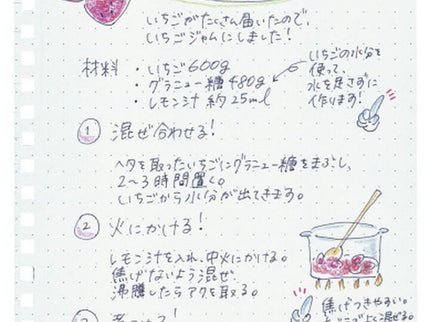 いちごがたくさん届いたので、
いちごジャムにしました!
材料・いちご600g
・グラニュー糖480g
・レモン汁 約25ml
いちごの水分を
使って、
水を足さずに
作ります!
① 混ぜ合わせる!
ヘタを取ったいちごにグラニュー糖をまぶし、
2〜3時間置く。
いちごから水分が出てきます。
② 火にかける!
レモン汁を入れ、中火にかける。
焦げないよう混ぜ、
沸騰したらアクを取る。
焦げつきやすい。